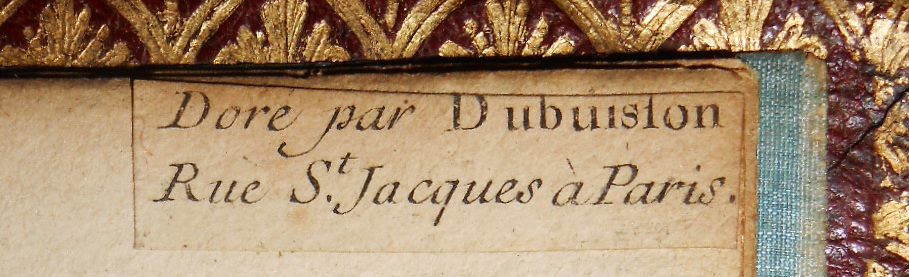 Doré par Dubuisson
Rue St. Jacques à Paris.